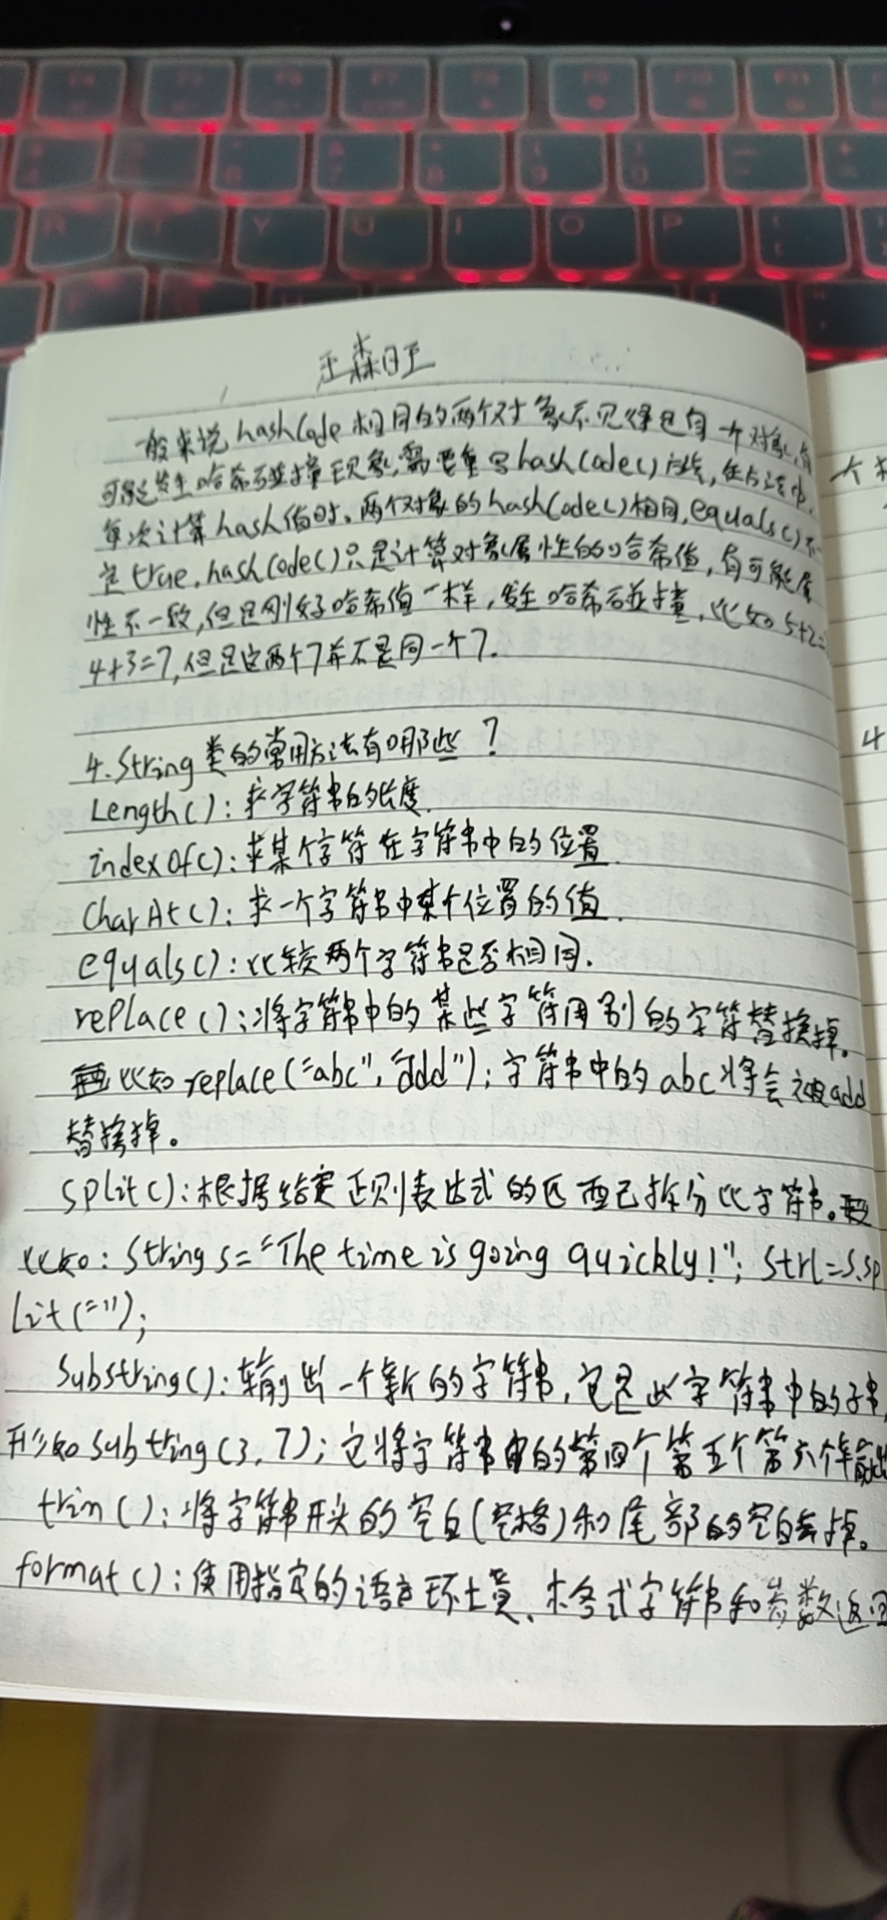 王森旺
一般来说hashCode相同的两个对象不见得是同一个对象,有
可能发生哈希碰撞现象,需要重写hashCode()方法,在方法中,
每次计算hash值时、两个对象的hashCode()相同,equals()不一
定true,hashCode()只是计算对象属性的哈希值,有可能属
性不一致,但是刚好哈希值一样,发生哈希碰撞,比如5+2=
4+3=7,但是这两个7并不是同一个7.
4.String类的常用方法有哪些?
Length():求字符串的长度.
indexOf():求某个字符在字符串中的位置.
CharAt():求一个字符串中某个位置的值.
equals():比较两个字符串是否相同.
replace():将字符串中的某些字符用别的字符替换掉。
比如replace("abc","ddd");字符串中的abc将会被add
替换掉。
split():根据给定正则表达式的匹配己拆分此字符串。
比如:String s="The time is going quickly!"; Str1=s.sp
lit("");
Substring():输出一个新的字符串,它是此字符串中的子串,
形如subtring(3,7);它将字符串中的第四个第五个第六个
trim():将字符串开头的空白(空格)和尾部的空白去掉。
format():使用指定的语言环境、格式字符串和参数返回
个
4